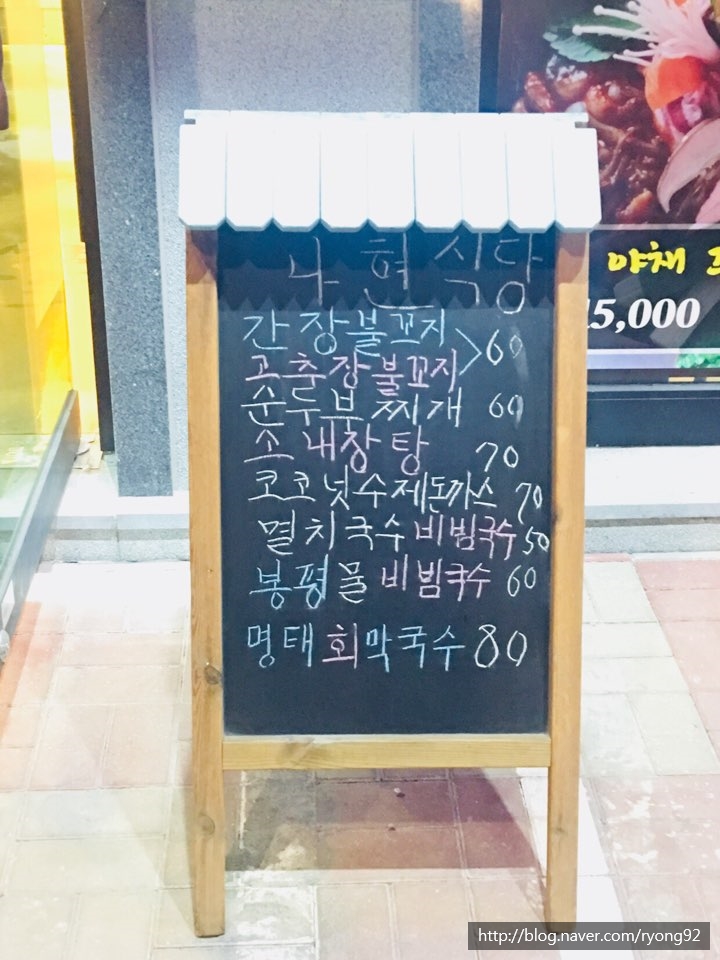 나현식당
간장불꼬지
고추장불꼬지 > 60
순두부찌개 60
소내장탕 70
코코넛수제돈까스 70
멸치국수 비빔국수 50
봉평물비빔국수 60
명태회막국수 80
야채
15,000
http://blog.naver.com/ryong92